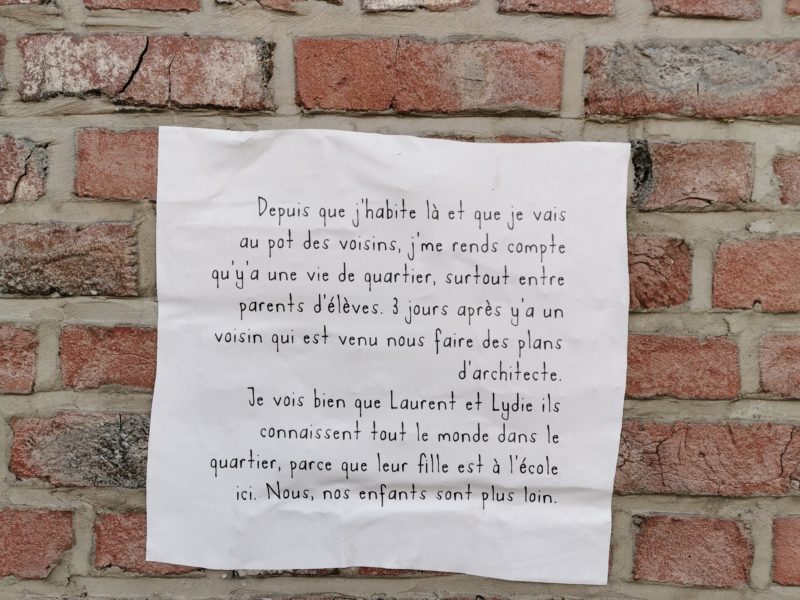 Depuis que j'habite là et que je vais
au pot des voisins, j'me rends compte
qu'y'a une vie de quartier, surtout entre
parents d'élèves. 3 jours après y'a un
voisin qui est venu nous faire des plans
d'architecte.
Je vois bien que Laurent et Lydie ils
connaissent tout le monde dans le
quartier, parce que leur fille est à l'école
ici. Nous, nos enfants sont plus loin.